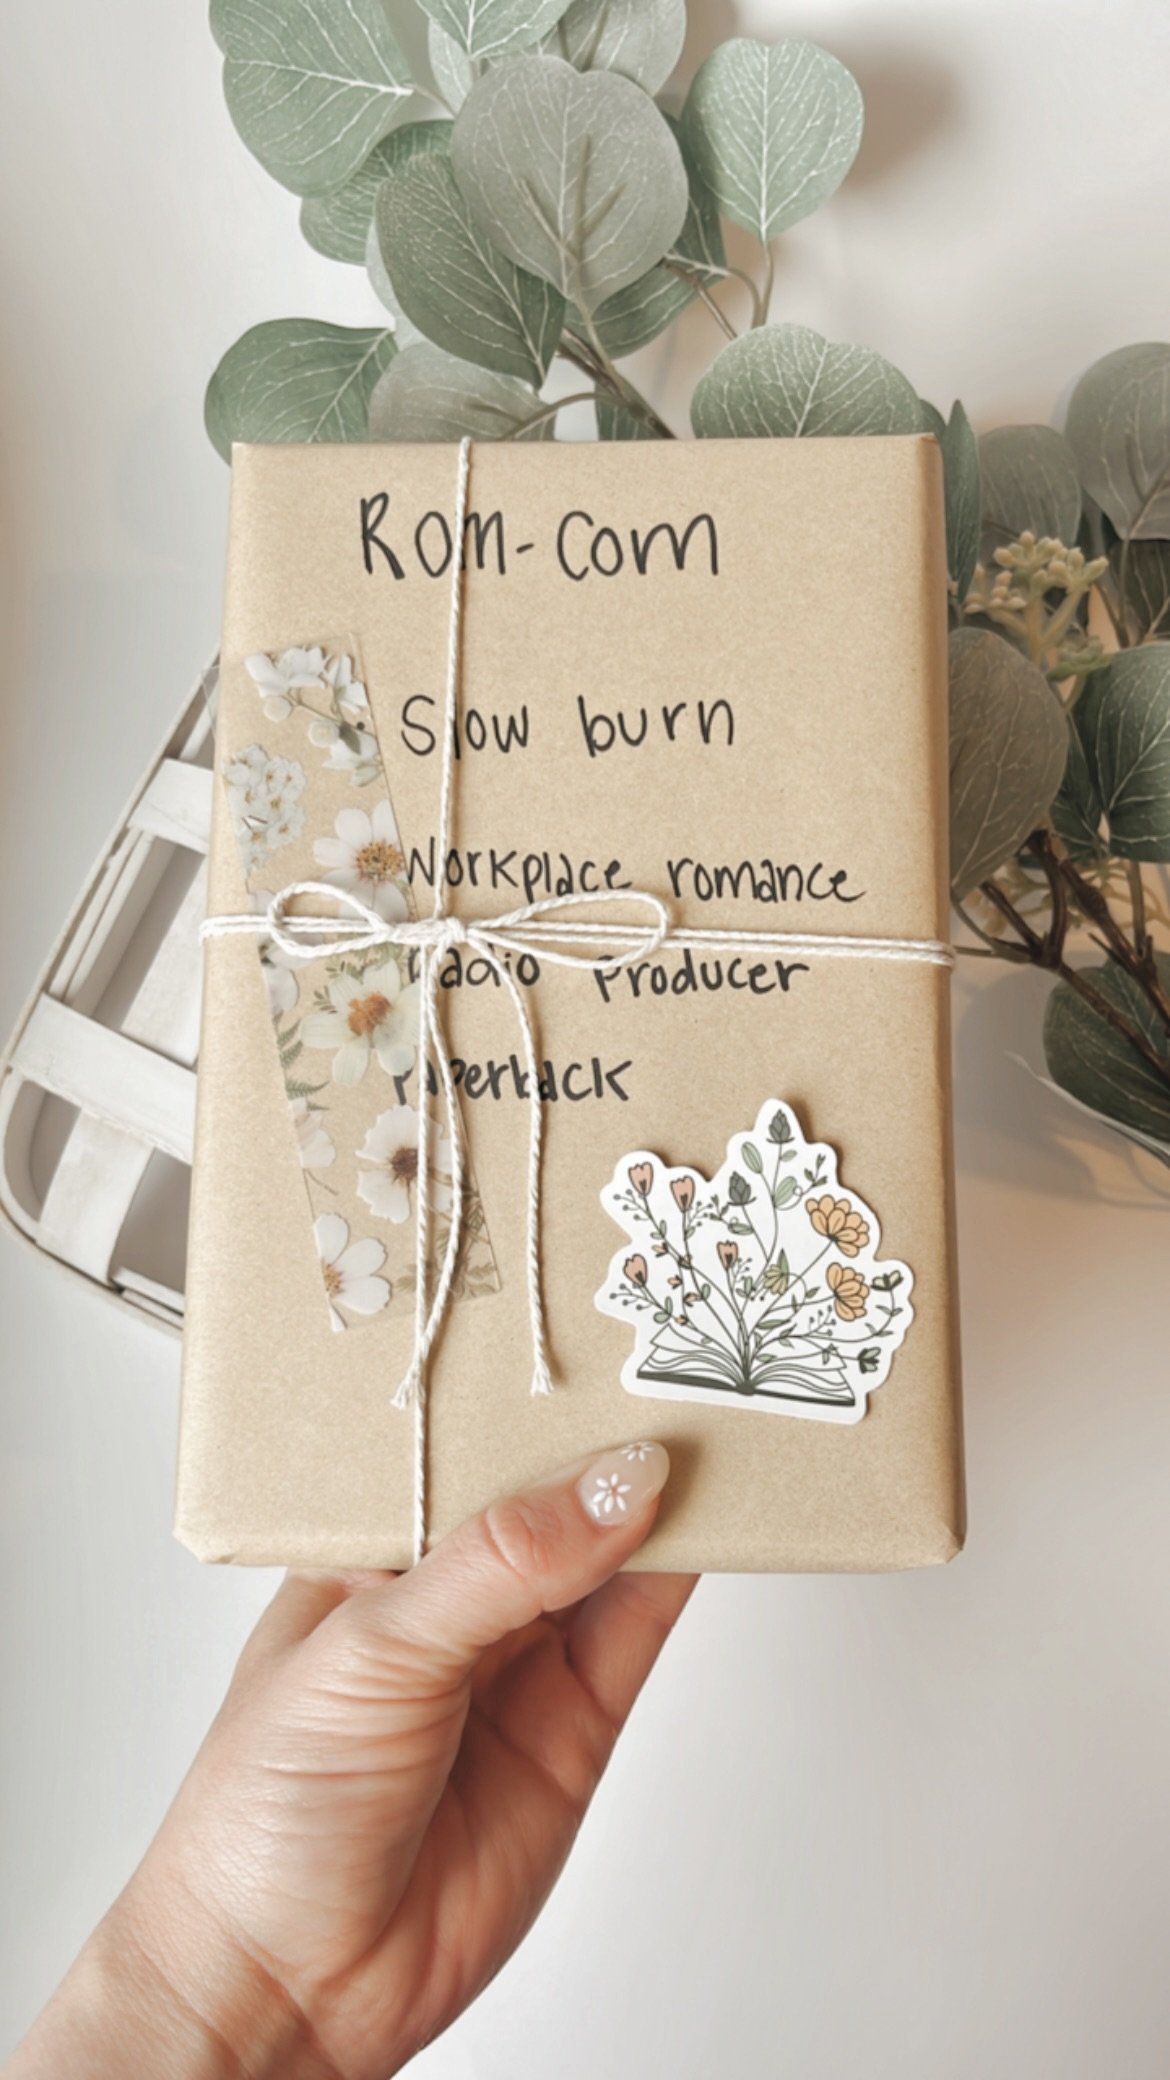 Rom-Com
Slow burn
Workplace romance
Radio Producer
Paperback